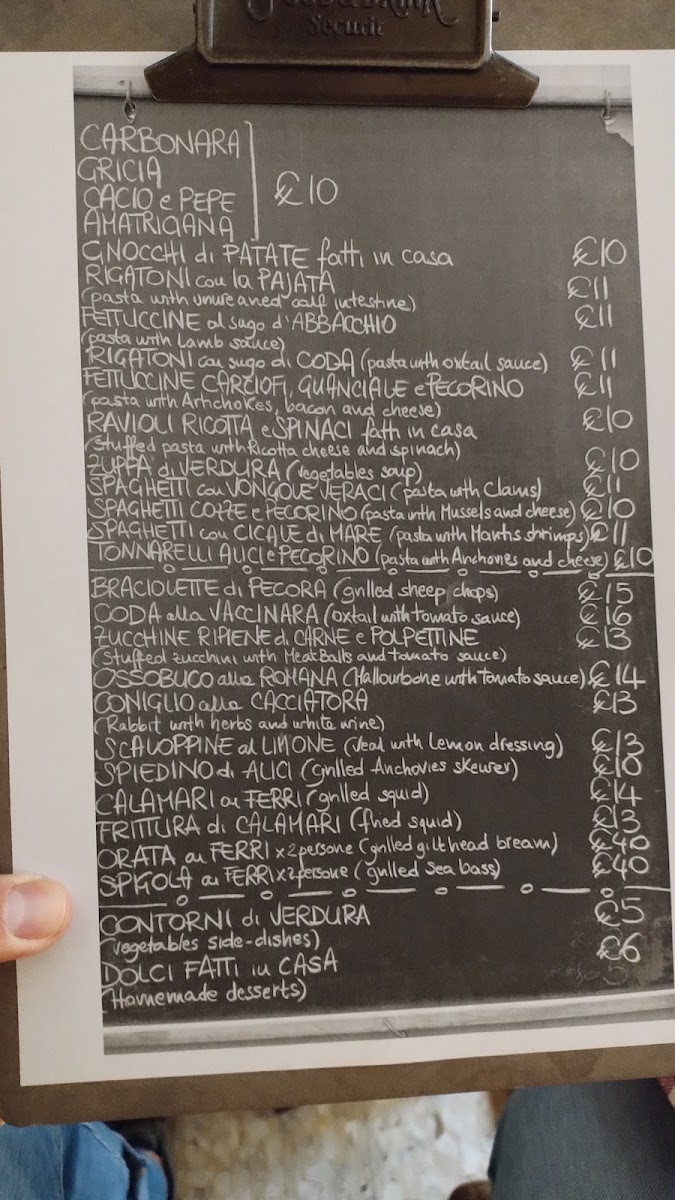 Securit
CARBONARA
GRICIA
CACIO e PEPE
AMATRICIANA
€10
GNOCCHI di PATATE fatti in casa €10
RIGATONI con la PAJATA €11
(pasta with unweaned calf intestine)
FETTUCCINE al sugo d'ABBACCHIO €11
(pasta with Lamb sauce)
RIGATONI con sugo di CODA (pasta with oxtail sauce) €11
FETTUCCINE CARCIOFI, GUANCIALE e PECORINO €11
(pasta with Artichokes, bacon and cheese)
RAVIOLI RICOTTA e SPINACI fatti in casa €10
(Stuffed pasta with Ricotta cheese and spinach)
ZUPPA di VERDURA (vegetables soup) €10
SPAGHETTI con VONGOLE VERACI (pasta with Clams) €11
SPAGHETTI COZZE e PECORINO (pasta with Mussels and cheese) €10
SPAGHETTI con CICALE di MARE (pasta with Mantis shrimps) €11
TONNARELLI ALICI e PECORINO (pasta with Anchovies and cheese) €10
BRACIOLETTE di PECORA (grilled sheep chops) €15
CODA alla VACCINARA (oxtail with tomato sauce) €16
ZUCCHINE RIPIENE di CARNE e POLPETTINE €13
(Stuffed zucchini with MeatBalls and tomato sauce)
OSSOBUCO alla ROMANA (Mallourbone with tomato sauce) €14
CONIGLIO alla CACCIATORA €13
(Rabbit with herbs and white wine)
SCALOPPINE al LIMONE (Veal with Lemon dressing) €13
SPIEDINO di ALICI (grilled Anchovies skewer) €10
CALAMARI ai FERRI (grilled squid) €14
FRITTURA di CALAMARI (fried squid) €13
ORATA ai FERRI x 2 persone (grilled gilt head bream) €40
SPIGOLA ai FERRI x 2 persone (grilled Sea bass) €40
CONTORNI di VERDURA €5
(vegetables side-dishes)
DOLCI FATTI in CASA €6
(Homemade desserts)